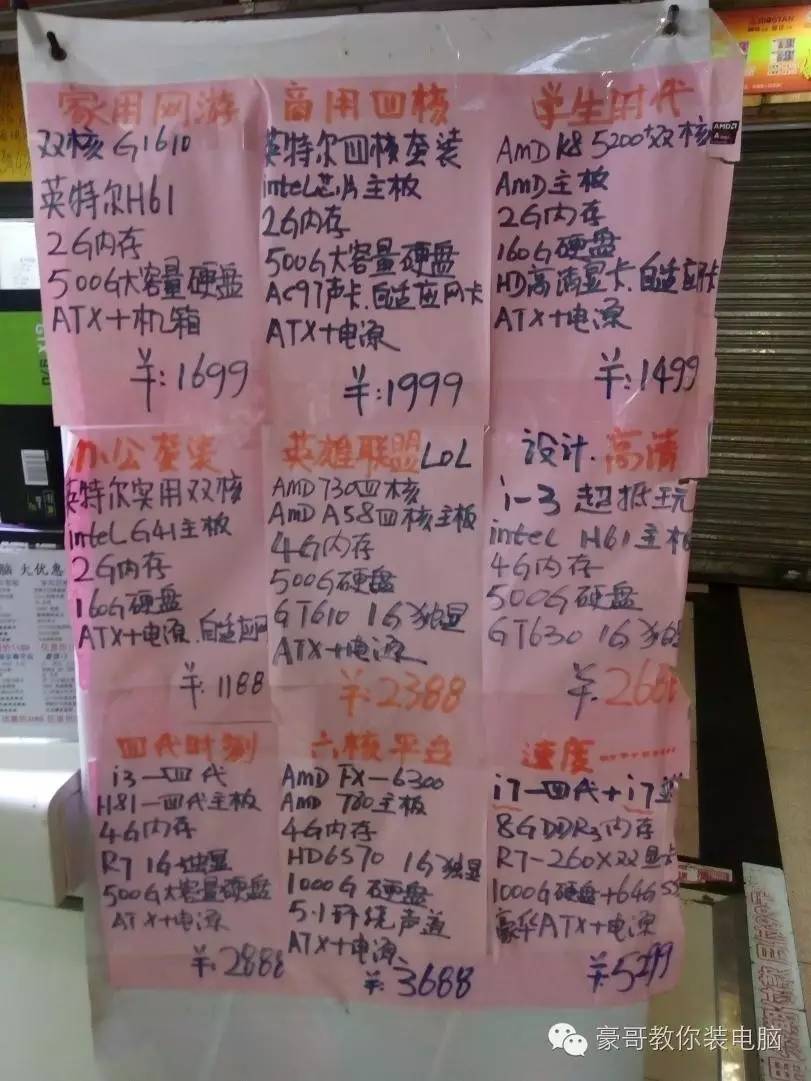 家用网游
双核G1610
英特尔H61
2G内存
500G大容量硬盘
ATX+机箱
¥:1699
商用四核
英特尔四核套装
intel芯片主板
2G内存
500G大容量硬盘
AC97声卡.自适应网卡
ATX+电源
¥:1999
学生时代
AMD K8 5200+双核
AMD主板
2G内存
160G硬盘
HD高清显卡.自适应网卡
ATX+电源
¥:1499
AMD
办公套装
英特尔实用双核
intel G41主板
2G内存
160G硬盘
ATX+电源.自适应网
¥:1188
英雄联盟LOL
AMD 730四核
AMD A58四核主板
4G内存
500G硬盘
GT610 1G独显
ATX+电源
¥:2388
设计.高清
i-3 超抵玩
intel H61主板
4G内存
500G硬盘
GT630 1G独显
¥:268
四代时测
i3一四代
H81一四代主板
4G内存
R7 1G独显
500G大容量硬盘
ATX+电源
¥:2888
六核平台
AMD FX-6300
AMD 780主板
4G内存
HD6570 1G独显
1000G硬盘
5.1环绕声道
ATX+电源
¥:3688
速度………
i7一四代+i7
8GDDR3内存
R7-260X双显卡
1000G硬盘+64GS
豪华ATX+电源
¥5299
脑 大优惠
豪哥教你装电脑